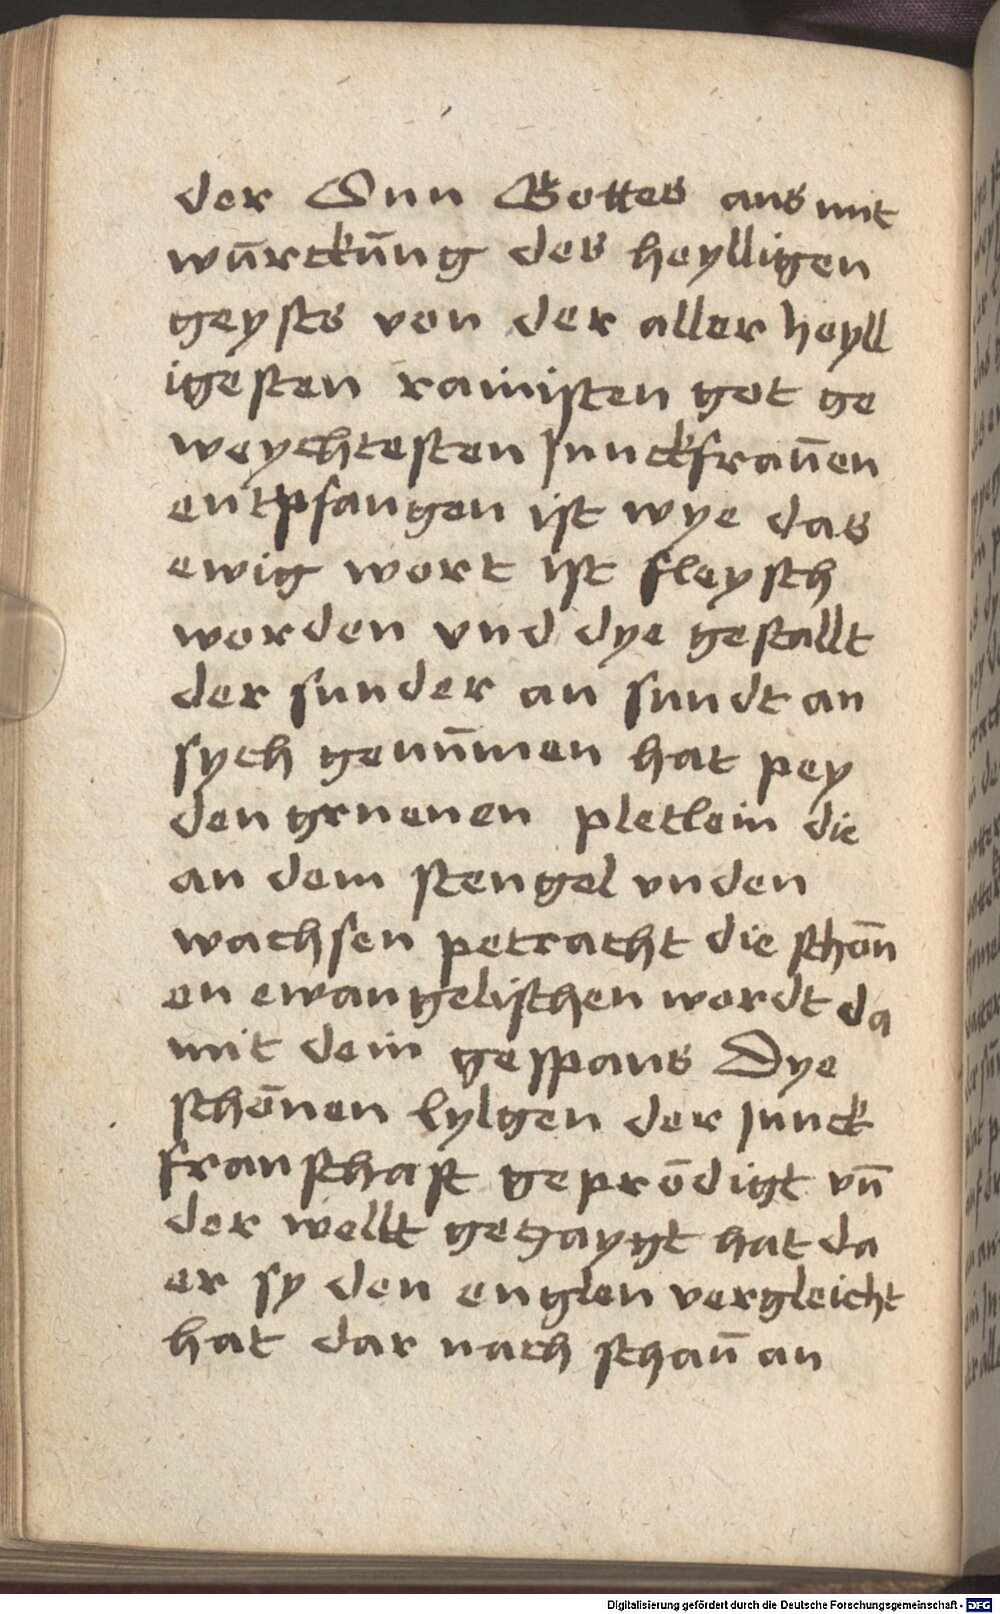 der Sun Gottes aus mit
wūrckūng des heylligen
geysts von der aller heyll
igesten rainisten got ge
weychtesten Junckfraūen
entpfangen ist wye das
ewig wort ist fleysch
worden vnd dye gestallt
der sunder an sundt an
sych genūmen hat pey
den gruenen pletlein die
an dem stengel vnden
wachsen petracht die schōn
en ewangelischen wordt da
mit dein gespons Dye
schōnen lylgen der Junck
frauschaft geprōdigt vn̄
der wellt getzaygt hat da
er sy den englen vergleicht
hat dar nach schaū an
Digitalisierung gefördert durch die Deutsche Forschungsgemeinschaft - DFG